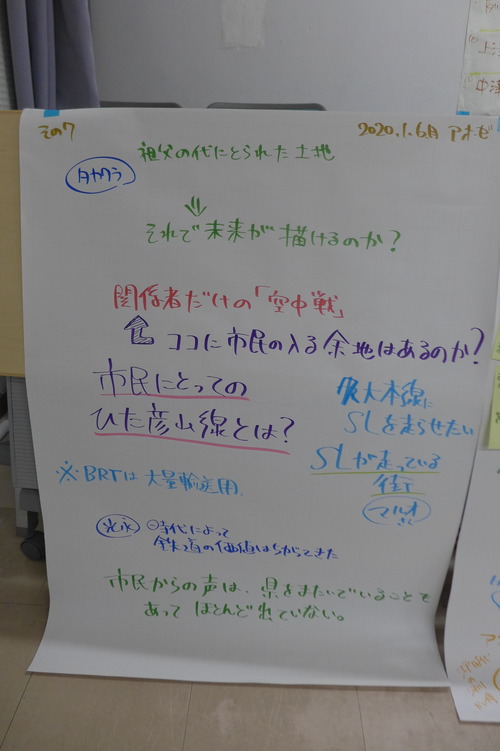 その7
2020.1.6月 アオゼ
祖父の代にとられた土地
タカクラ
それで未来が描けるのか?
関係者だけの「空中戦」
ココに市民の入る余地はあるのか?
市民にとっての
ひた彦山線とは?
久大本線に
SLを走らせたい
SLが走っている
街
マルオ
※BRTは大量輸送用
時代によって
鉄道の価値はちがってきた
市民からの声は、県をまたいでいることも
あってほとんど出ていない。
上
中津